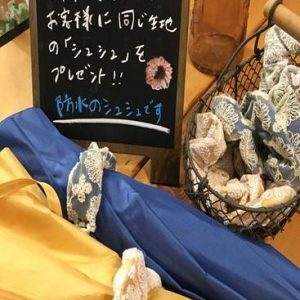 お客様に同じ生地
の「シュシュ」を
プレゼント!!
防水のシュシュです